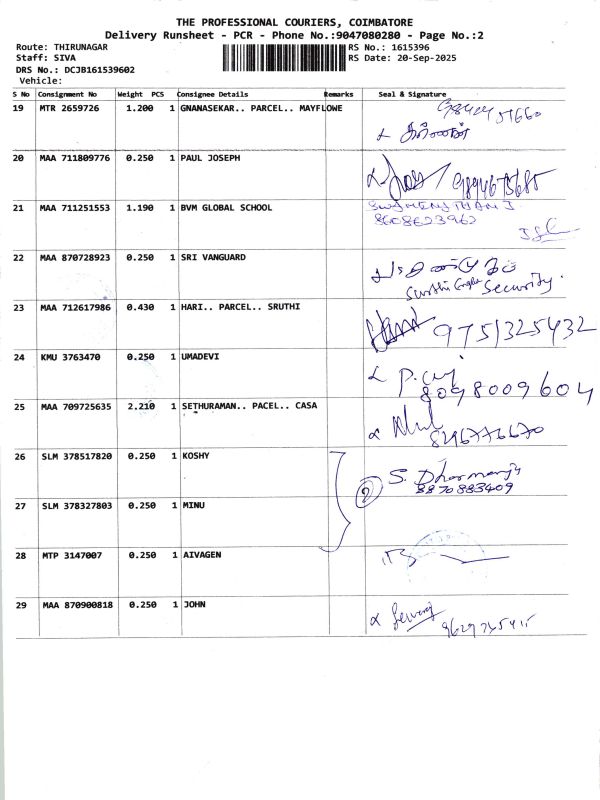 THE PROFESSIONAL COURIERS, COIMBATORE
Delivery Runsheet - PCR - Phone No.:9047080280 - Page No.:2
Route: THIRUNAGAR RS No.: 1615396
Staff: SIVA RS Date: 20-Sep-2025
DRS No.: DCJB161539602
Vehicle:
S No Consignment No Weight PCS Consignee Details Remarks Seal & Signature
19 MTR 2659726 1.200 1 GNANASEKAR.. PARCEL.. MAYFLOWE
20 MAA 711809776 0.250 1 PAUL JOSEPH
21 MAA 711251553 1.190 1 BVM GLOBAL SCHOOL
8608623962
22 MAA 870728923 0.250 1 SRI VANGUARD
Security.
23 MAA 712617986 0.430 1 HARI.. PARCEL.. SRUTHI
9751325432
24 KMU 3763470 0.250 1 UMADEVI
8098009604
25 MAA 709725635 2.210 1 SETHURAMAN.. PACEL.. CASA
26 SLM 378517820 0.250 1 KOSHY
2 S.
8870883409
27 SLM 378327803 0.250 1 MINU
28 MTP 3147007 0.250 1 AIVAGEN
29 MAA 870900818 0.250 1 JOHN